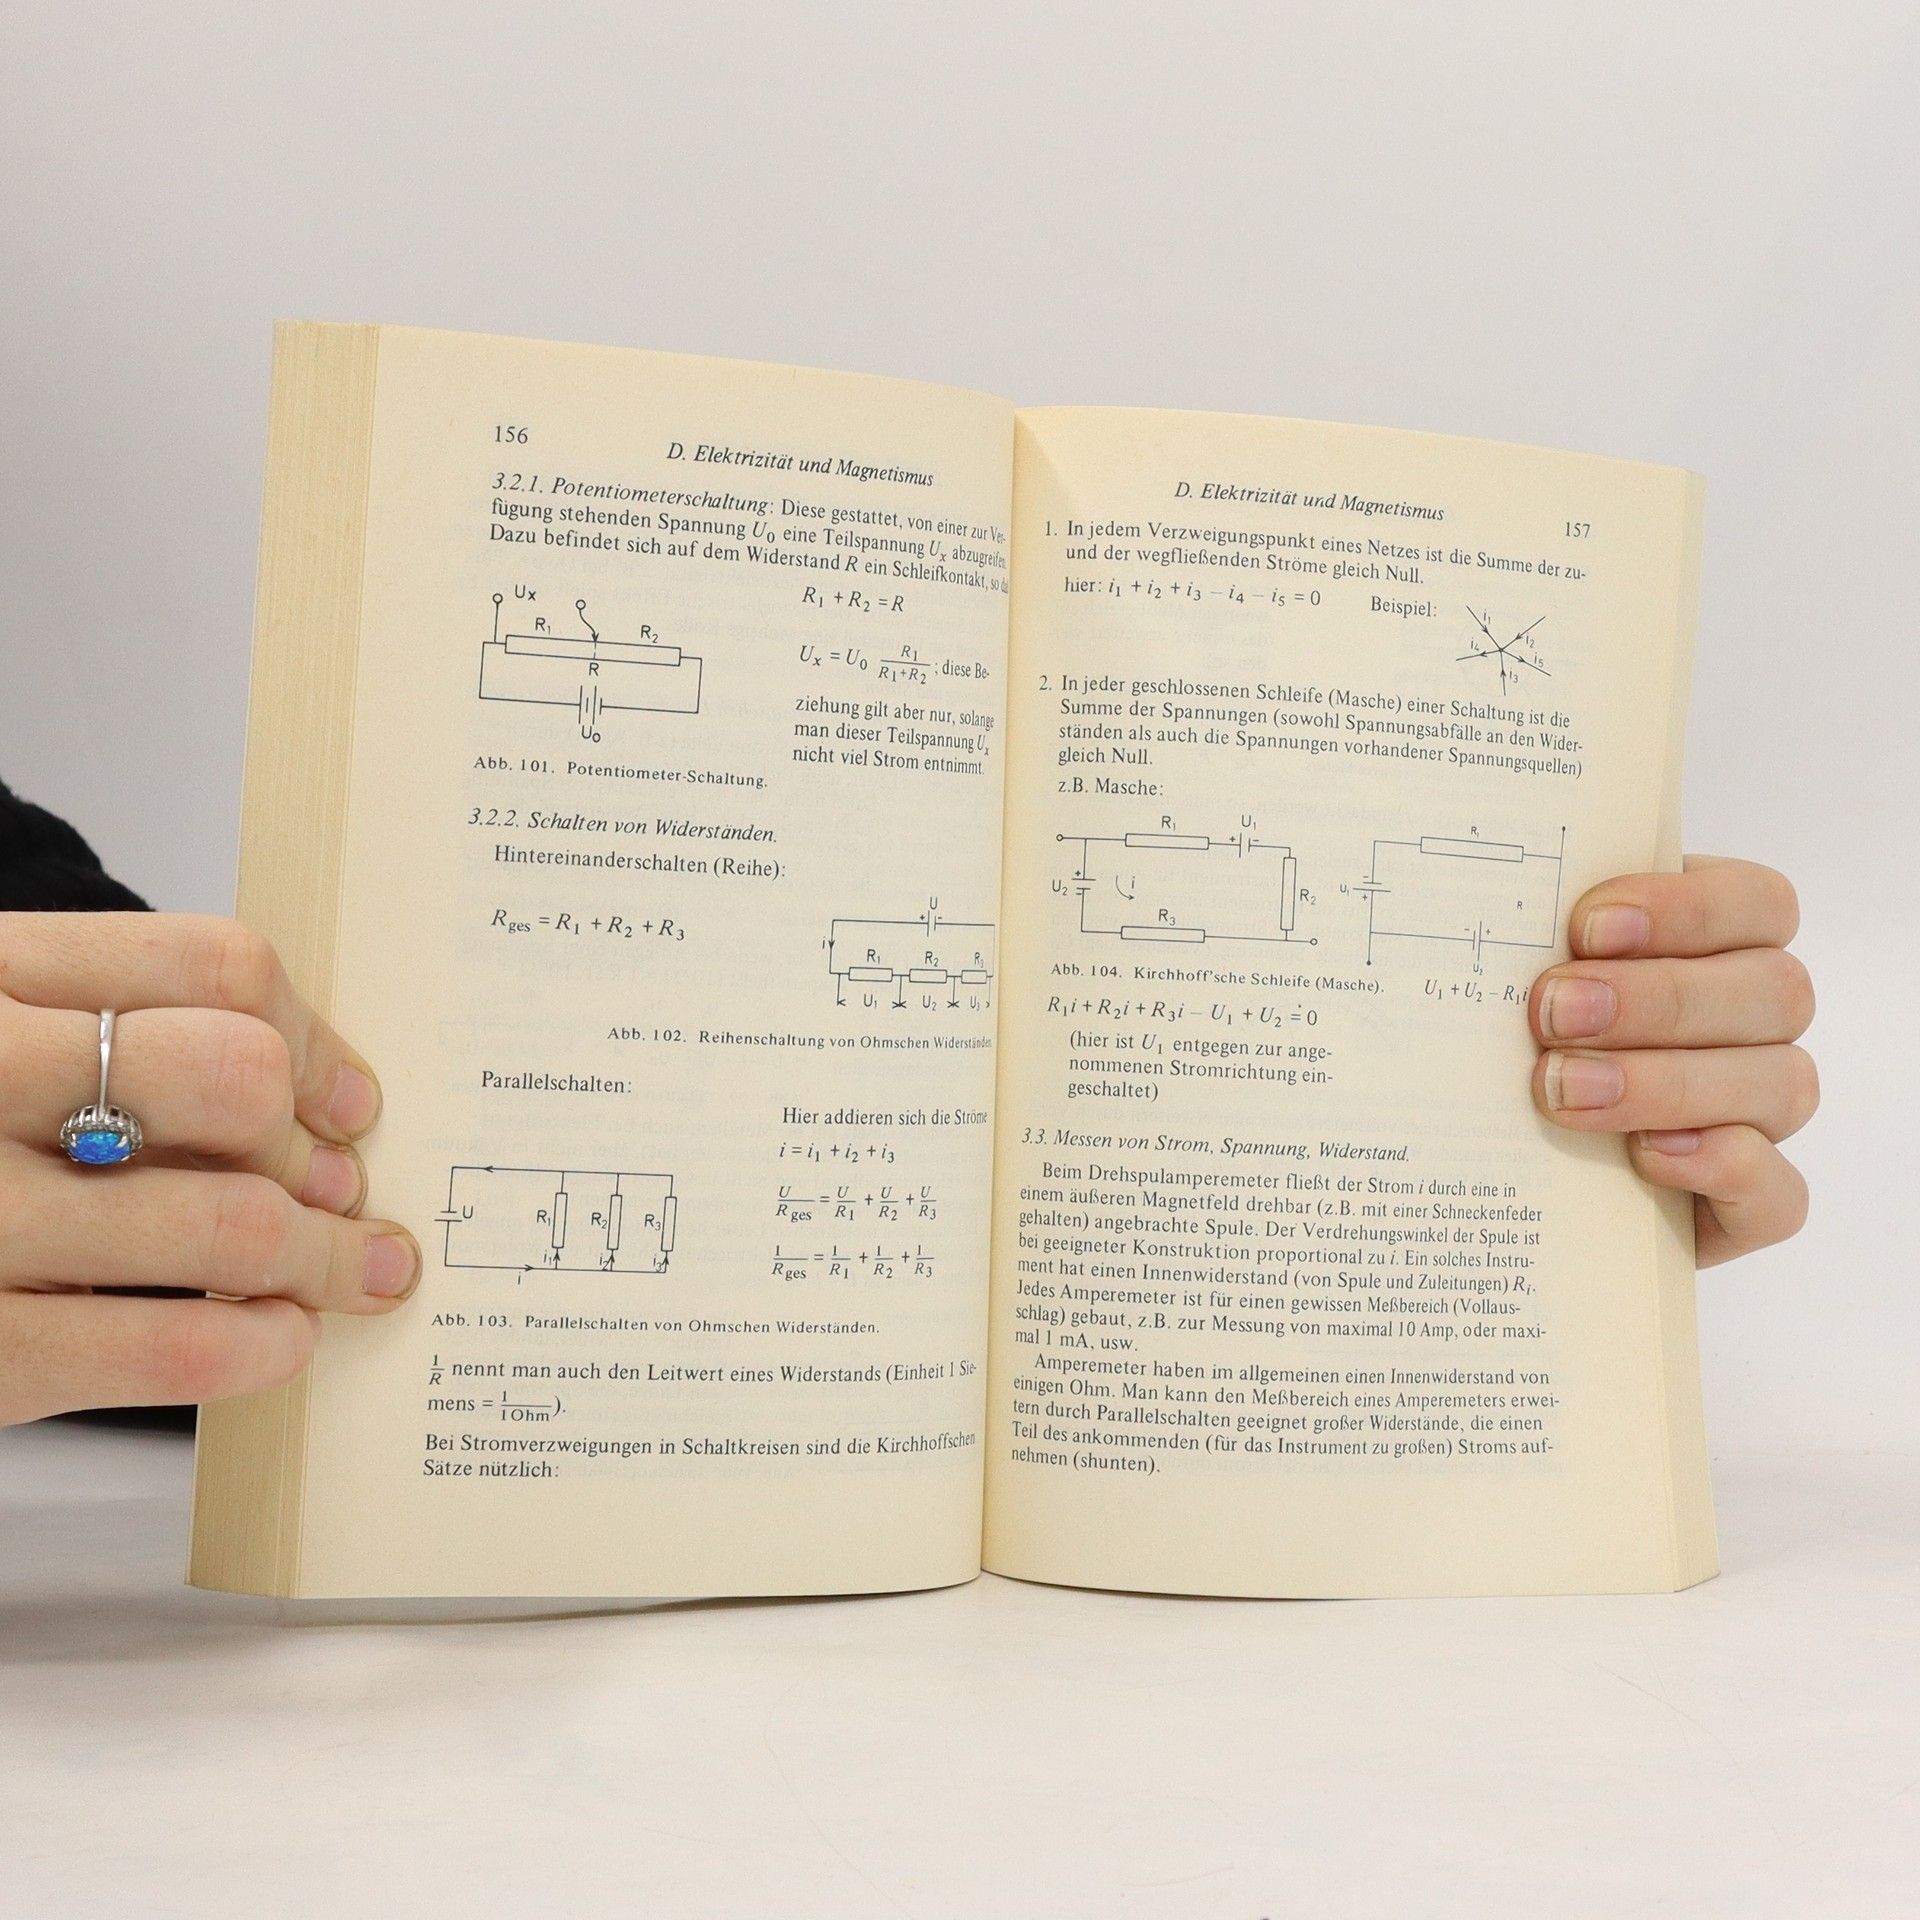 156
D. Elektrizität und Magnetismus
3.2.1. Potentiometerschaltung: Diese gestattet, von einer zur Ver-
fügung stehenden Spannung U₀ eine Teilspannung Uₓ abzugreifen.
Dazu befindet sich auf dem Widerstand R ein Schleifkontakt, so
Ux
R₁
R₂
R
U₀
R₁ + R₂ = R
Uₓ = U₀ R₁/(R₁+R₂) ; diese Be-
ziehung gilt aber nur, solange
man dieser Teilspannung Uₓ
nicht viel Strom entnimmt.
Abb. 101. Potentiometer-Schaltung.
3.2.2. Schalten von Widerständen.
Hintereinanderschalten (Reihe):
R_ges = R₁ + R₂ + R₃
U
+ -
i
R₁ R₂ R₃
U₁ U₂ U₃
Abb. 102. Reihenschaltung von Ohmschen Widerständen.
Parallelschalten:
Hier addieren sich die Ströme
i = i₁ + i₂ + i₃
U/R_ges = U/R₁ + U/R₂ + U/R₃
1/R_ges = 1/R₁ + 1/R₂ + 1/R₃
U R₁ R₂ R₃
i₁ i₂ i₃
i
Abb. 103. Parallelschalten von Ohmschen Widerständen.
1/R nennt man auch den Leitwert eines Widerstands (Einheit 1 Sie-
mens = 1/(1 Ohm)).
Bei Stromverzweigungen in Schaltkreisen sind die Kirchhoffschen
Sätze nützlich:
D. Elektrizität und Magnetismus
157
1. In jedem Verzweigungspunkt eines Netzes ist die Summe der zu-
und der wegfließenden Ströme gleich Null.
hier: i₁ + i₂ + i₃ − i₄ − i₅ = 0
Beispiel:
i₁
i₂
i₄
i₅
i₃
2. In jeder geschlossenen Schleife (Masche) einer Schaltung ist die
Summe der Spannungen (sowohl Spannungsabfälle an den Wider-
ständen als auch die Spannungen vorhandener Spannungsquellen)
gleich Null.
z.B. Masche:
R₁ U₁
+ -
U₂ + i R₂
R₃
R₁
U₁ - + R
- +
U₂
Abb. 104. Kirchhoff'sche Schleife (Masche).
U₁ + U₂ − R₁i
R₁i + R₂i + R₃i − U₁ + U₂ = 0
(hier ist U₁ entgegen zur ange-
nommenen Stromrichtung ein-
geschaltet)
3.3. Messen von Strom, Spannung, Widerstand.
Beim Drehspulamperemeter fließt der Strom i durch eine in
einem äußeren Magnetfeld drehbar (z.B. mit einer Schneckenfeder
gehalten) angebrachte Spule. Der Verdrehungswinkel der Spule ist
bei geeigneter Konstruktion proportional zu i. Ein solches Instru-
ment hat einen Innenwiderstand (von Spule und Zuleitungen) Rᵢ.
Jedes Amperemeter ist für einen gewissen Meßbereich (Vollaus-
schlag) gebaut, z.B. zur Messung von maximal 10 Amp, oder maxi-
mal 1 mA, usw.
Amperemeter haben im allgemeinen einen Innenwiderstand von
einigen Ohm. Man kann den Meßbereich eines Amperemeters erwei-
tern durch Parallelschalten geeignet großer Widerstände, die einen
Teil des ankommenden (für das Instrument zu großen) Stroms auf-
nehmen (shunten).